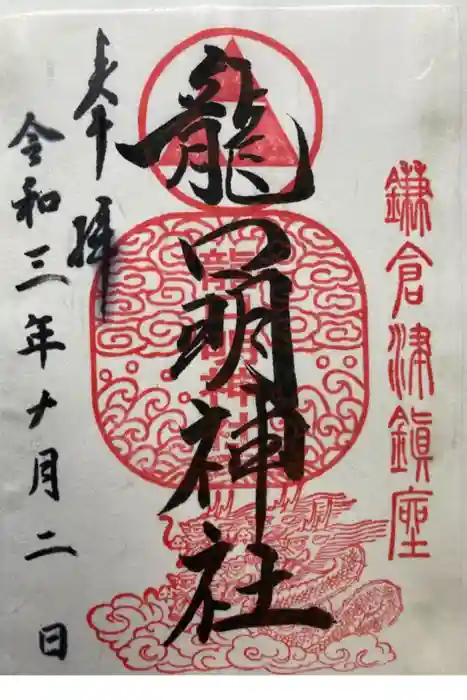 鎌倉津鎮座
龍口明神社
奉拝
令和三年十月二日
龍口明神社